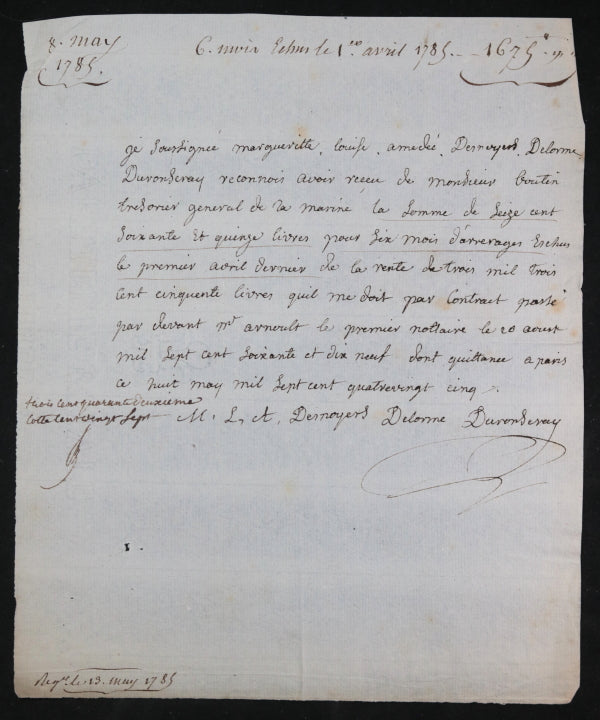 8. may
1785.
6. mois Echus le 1er avril 1785 - - 1675
je Soussignée margueritte, louise, amedée, Desnoyers, Delorme,
Duronseray reconnois avoir reçeu de monsieur Boutin
tresorier general de la marine la Somme de Seize cent
Soixante Et quinze livres pour Six mois d'arrerages Eschus
le premier avril dernier de la rente de trois mil trois
cent cinquente livres quil me doit par Contract passé
par devant mr arnoult le premier nottaire le 20 aoust
mil Sept cent Soixante et dix neuf dont quittance a paris
ce huit may mil Sept cent quatrevingt cinq.
trois cent quarante deuxieme
Cotte Cent vingt Sept M. L. A. Desnoyers Delorme Duronseray
Regré. le 13. may 1785